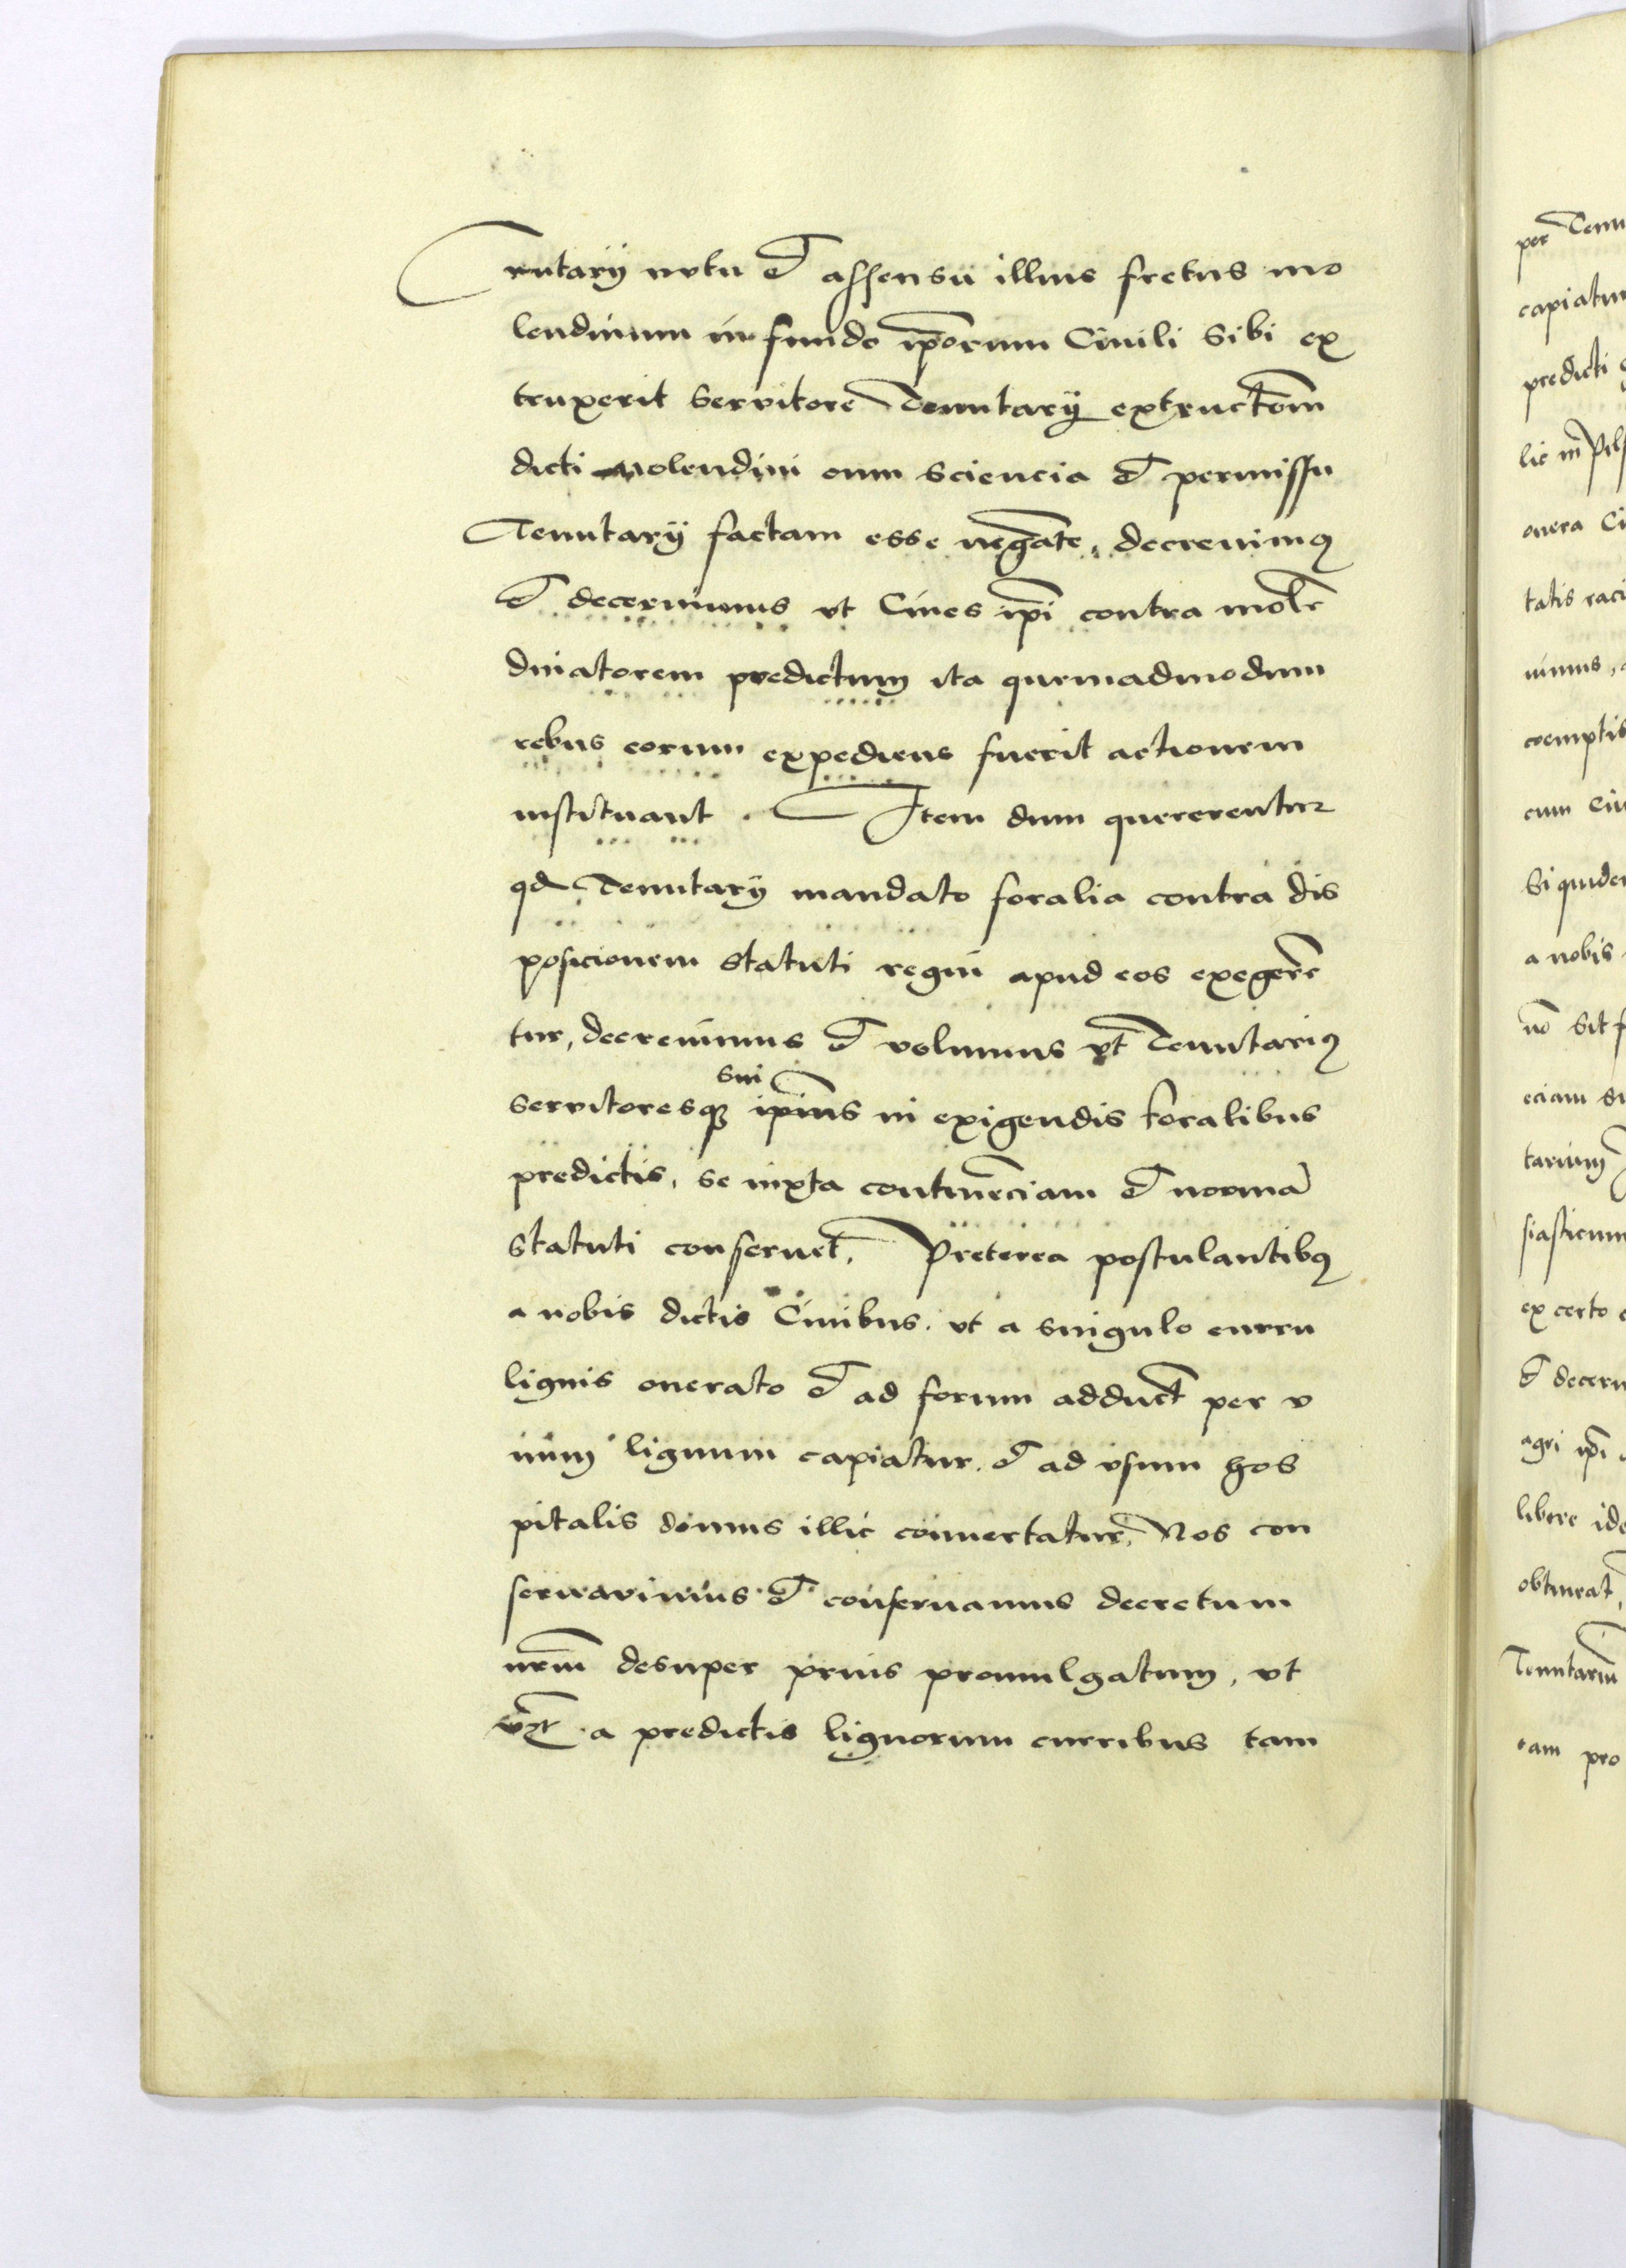 Tenutarÿ nutu et assensu illius fretus mo
lendinum in fundo ip̃orum Ciuili sibi ex
truxerit servitore Tenutarÿ extructõm
dicti molendini cum sciencia et permissu
Tenutarÿ factam esse negãte, decreuimꝰ
et decernimus vt Ciues ip̃i contra molẽ
dinatorem predictum ita quemadmodum
rebus eorum expediens fuerit actionem
instituant. Item dum quererentur
qd Tenutarÿ mandato foralia contra dis
posicionem statuti regni apud eos exegerẽ
tur, decreuimus et volumus vt Tenutariꝰ
sui
servitoresqꝫ ip̃ius in exigendis foralibus
predictis, se iuxta continẽciam et normã
statuti conseruet. Preterea postulantibꝰ
a nobis dictis Ciuibus. vt a singulo curru
lignis onerato et ad forum adduct̃ per v
num lignum capiatur. et ad vsum hos
pitalis domus illic conuertatur, Nos con
servavimus et conseruamus decretum
nr̃m desuper prius promulgatum, vt
vꝫ a predictis lignorum curribus tam
per Tenu
capiatur
predicti
lic in Pils
onera Ci
tatis raci
uimus,
coemptis
cum Ciu
Si quidem
a nobis
nõ sit f
eciam su
tarium
siasticum
ex certo
et decern
agri ip̃i
libere ide
obtineat,
Tenutariũ
tam pro